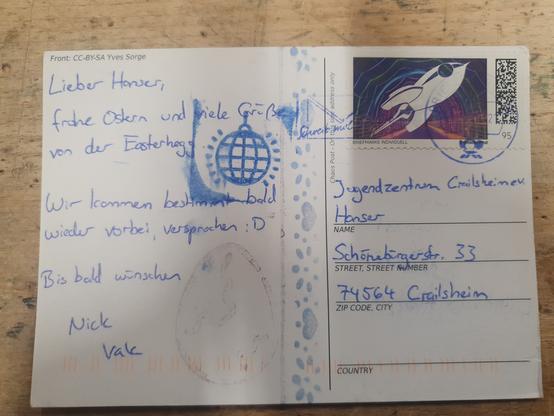 Front: CC-BY-SA Yves Sorge
Lieber Hanser,
frohe Ostern und viele Grüße
von der Easterhegg
Wir kommen bestimmt bald
wieder vorbei, versprochen :D
Bis bald wünschen
Nick
Vak
BRIEFMARKE INDIVIDUELL
95
Jugendzentrum Crailsheim e.V.
Hanser
NAME
Schönebürgerstr. 33
STREET, STREET NUMBER
74564 Crailsheim
ZIP CODE, CITY
COUNTRY